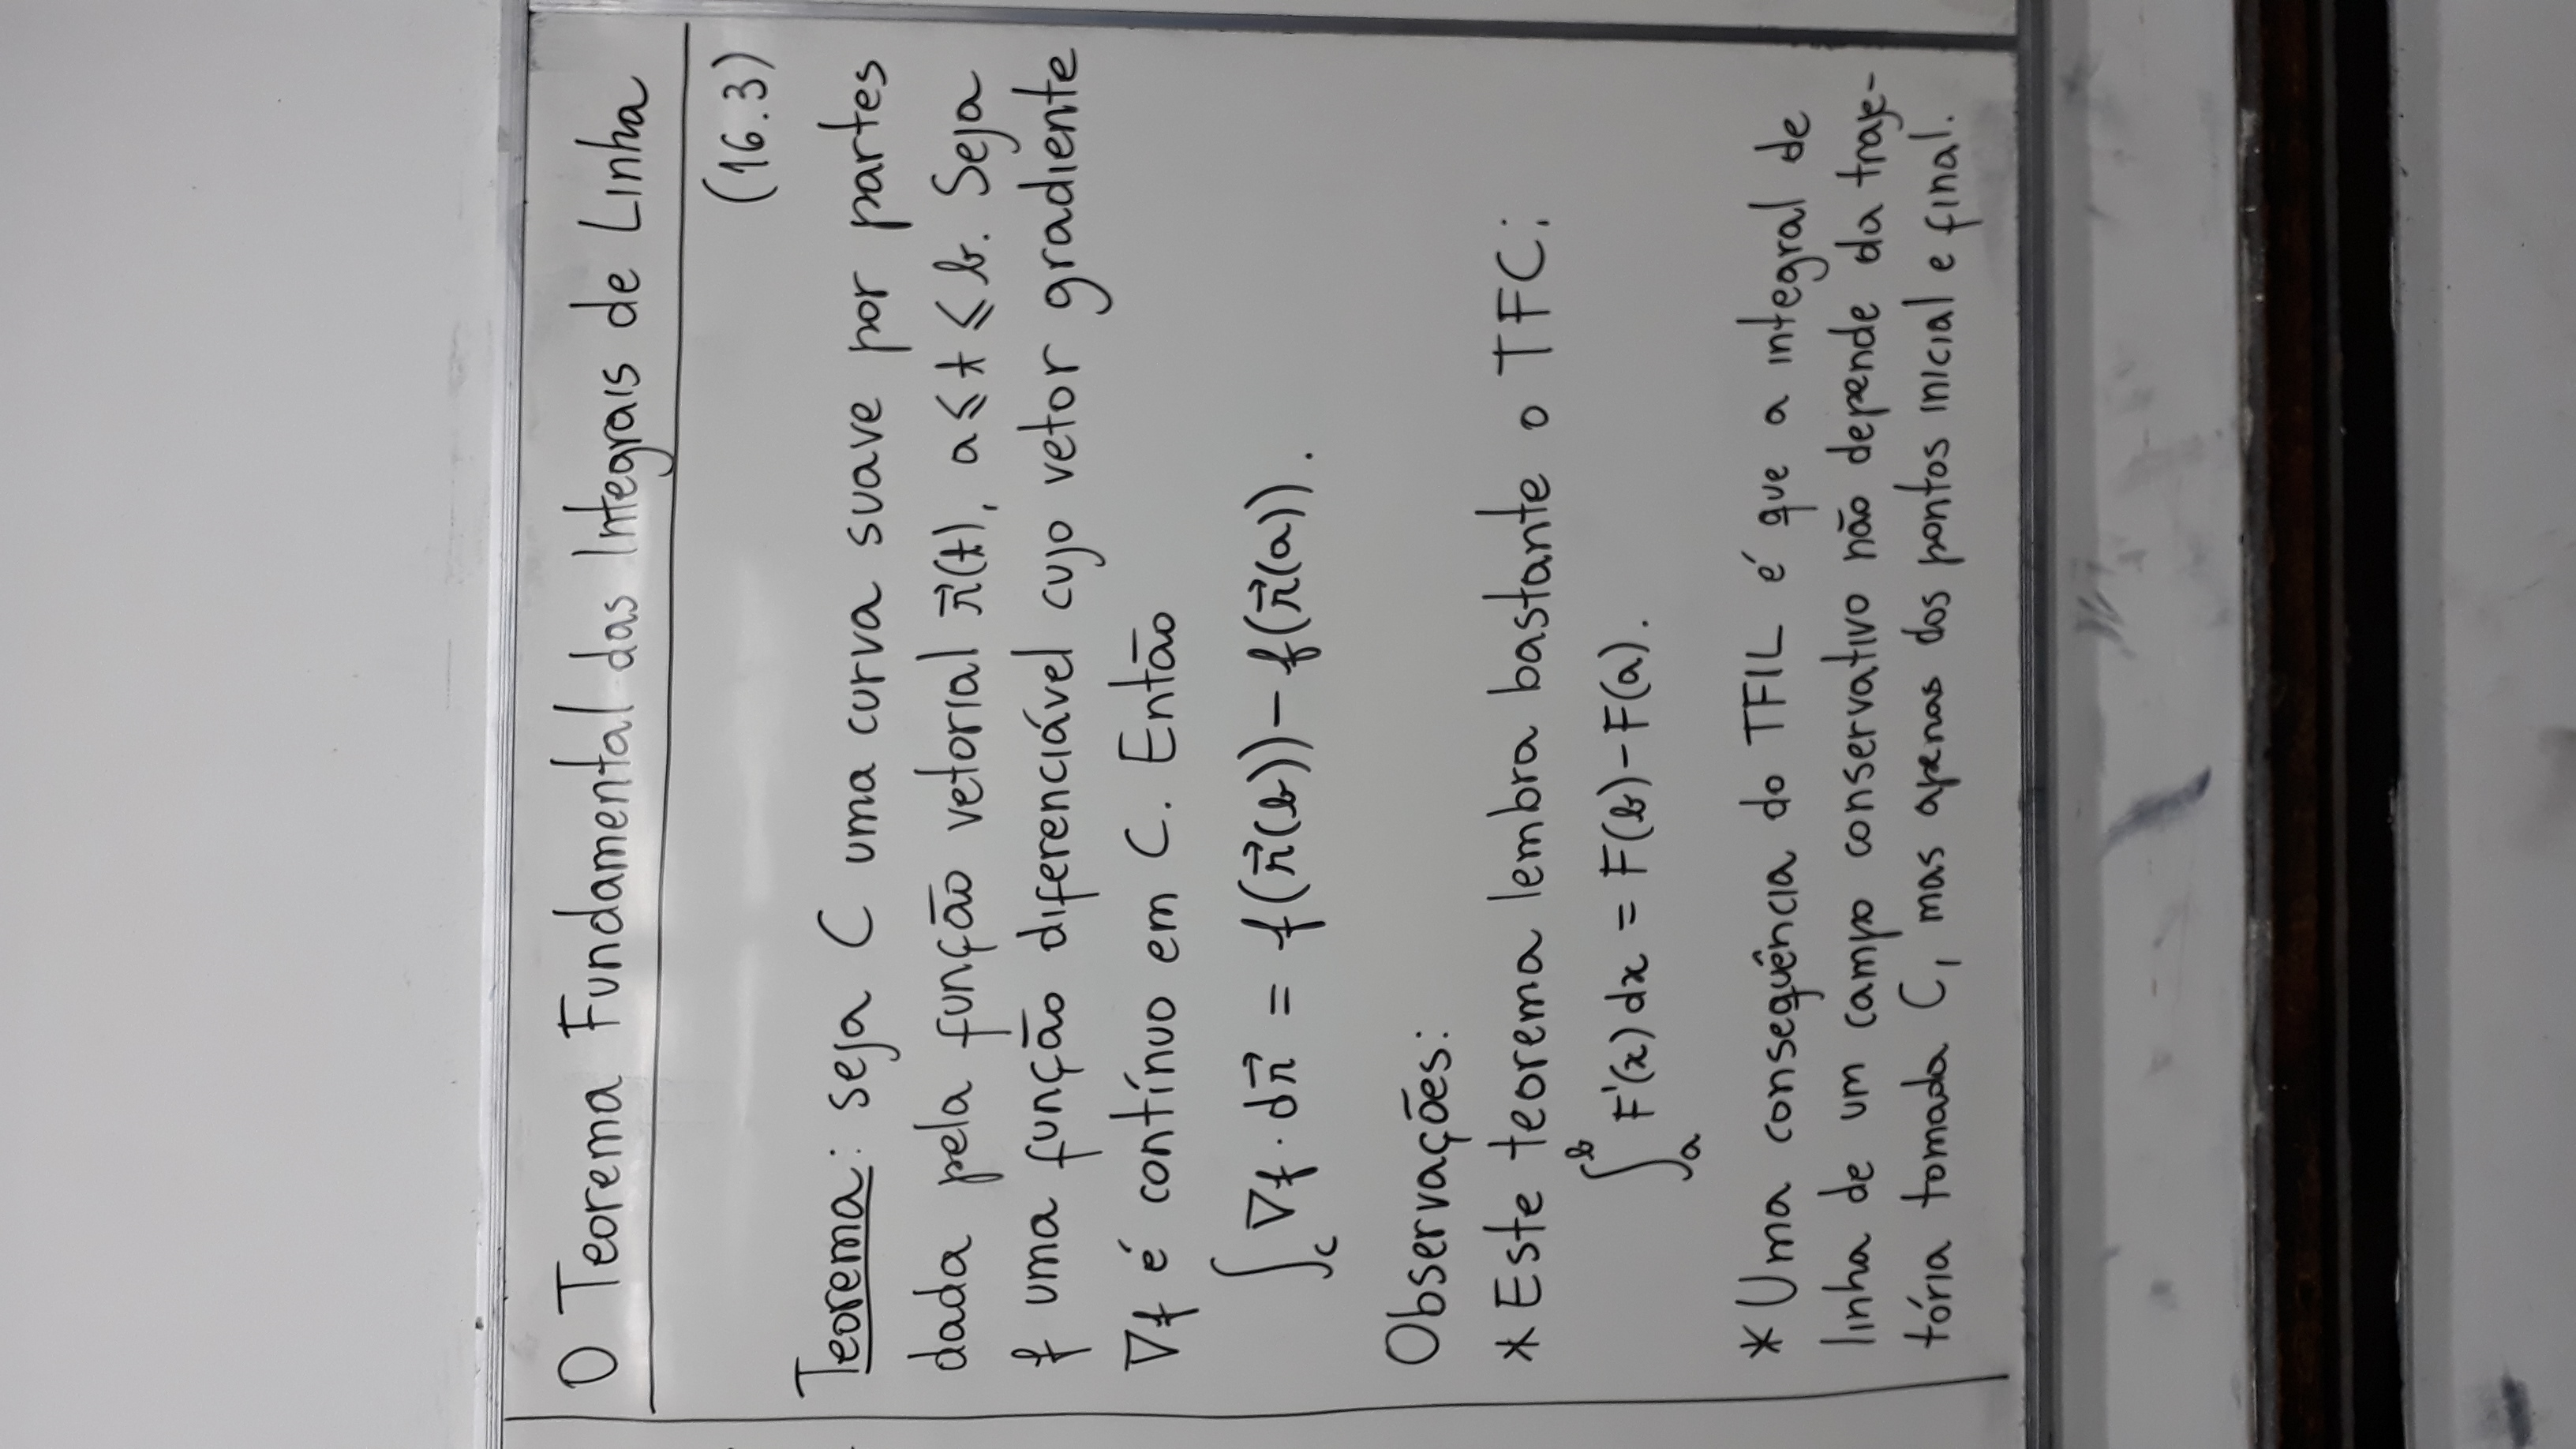 O Teorema Fundamental das Integrais de Linha
(16.3)
Teorema: seja C uma curva suave por partes
dada pela função vetorial r⃗(t), a ⩽ t ⩽ b. Seja
f uma função diferenciável cujo vetor gradiente
∇f é contínuo em C. Então
∫_C ∇f · dr⃗ = f(r⃗(b)) − f(r⃗(a)).
Observações:
* Este teorema lembra bastante o TFC:
∫_a^b F'(x) dx = F(b) − F(a).
* Uma consequência do TFIL é que a integral de
linha de um campo conservativo não depende da traje-
tória tomada C, mas apenas dos pontos inicial e final.